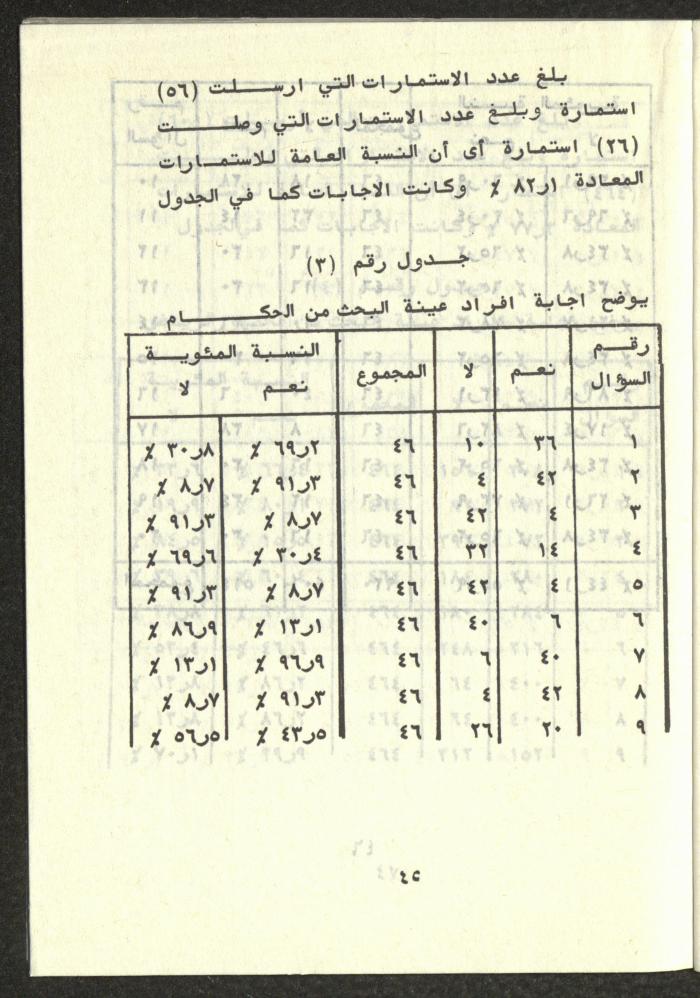 بلغ عدد الاستمارات التي ارسلت (٥٦)
استمارة وبلغ عدد الاستمارات التي وصلت
(٢٦) استمارة أى أن النسبة العامة للاستمارات
المعادة ١ر٨٢ ٪ وكانت الاجابات كما في الجدول
جدول رقم (٣)
يوضح اجابة افراد عينة البحث من الحكام
رقم السؤال نعم لا المجموع النسبة المئوية
نعم لا
١ ٣٦ ١٠ ٤٦ ٢ر٦٩ ٪ ٨ر٣٠ ٪
٢ ٤٢ ٤ ٤٦ ٣ر٩١ ٪ ٧ر٨ ٪
٣ ٤ ٤٢ ٤٦ ٧ر٨ ٪ ٣ر٩١ ٪
٤ ١٤ ٣٢ ٤٦ ٤ر٣٠ ٪ ٦ر٦٩ ٪
٥ ٤ ٤٢ ٤٦ ٧ر٨ ٪ ٣ر٩١ ٪
٦ ٦ ٤٠ ٤٦ ١ر١٣ ٪ ٩ر٨٦ ٪
٧ ٤٠ ٦ ٤٦ ٩ر٩٦ ٪ ١ر١٣ ٪
٨ ٤٢ ٤ ٤٦ ٣ر٩١ ٪ ٧ر٨ ٪
٩ ٢٠ ٢٦ ٤٦ ٥ر٤٣ ٪ ٥ر٥٦ ٪
٤٥